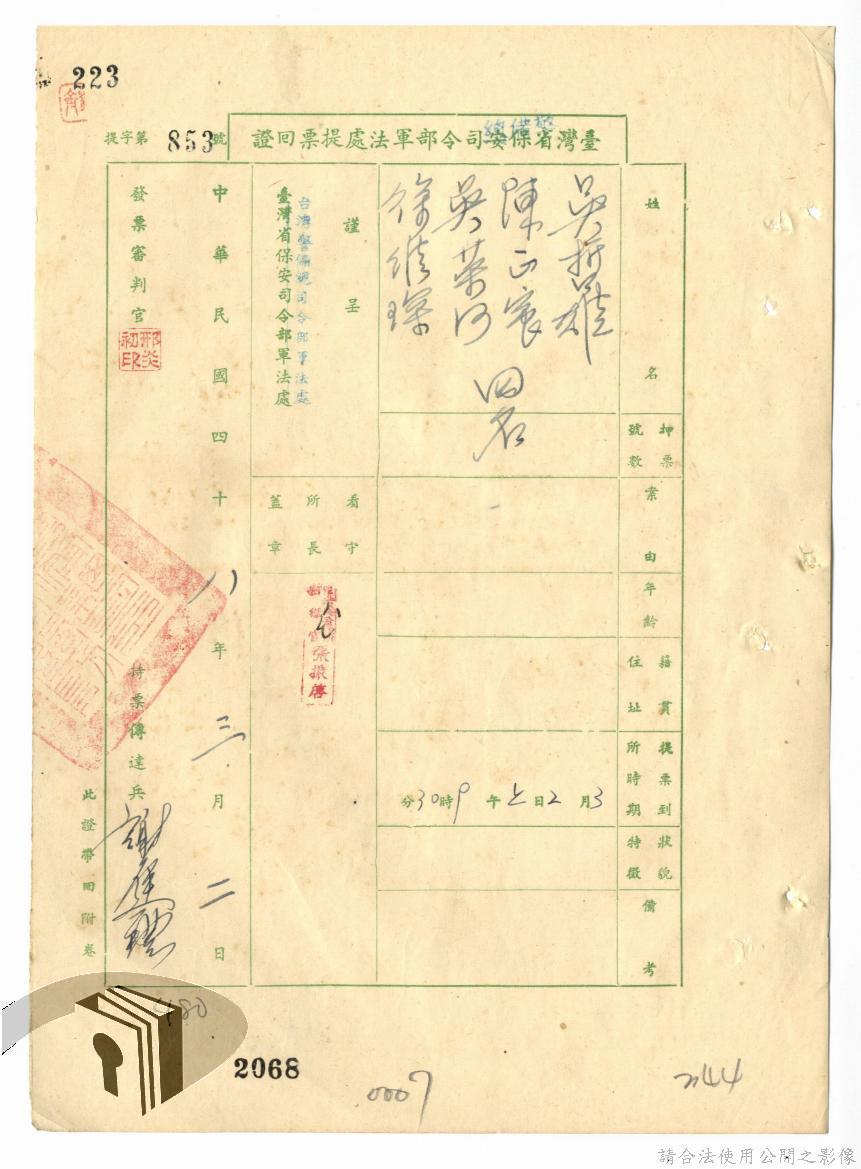 223
提字第853號
臺灣省保安司令部軍法處提票回證
警備總
姓名
吳哲雄
陳正宸
吳榮河
徐維琛
四名
押票號數
案由
年齡
籍貫住址
提票到所時期
3月2日上午9時30分
狀貌特徵
備考
謹呈
台灣警備總司令部軍法處
臺灣省保安司令部軍法處
看守所長蓋章
張振啓
中華民國四十八年三月二日
發票審判官
邢炎初印
持票傳達兵
此證帶回附卷
480
2068
0007
2144
請合法使用公開之影像